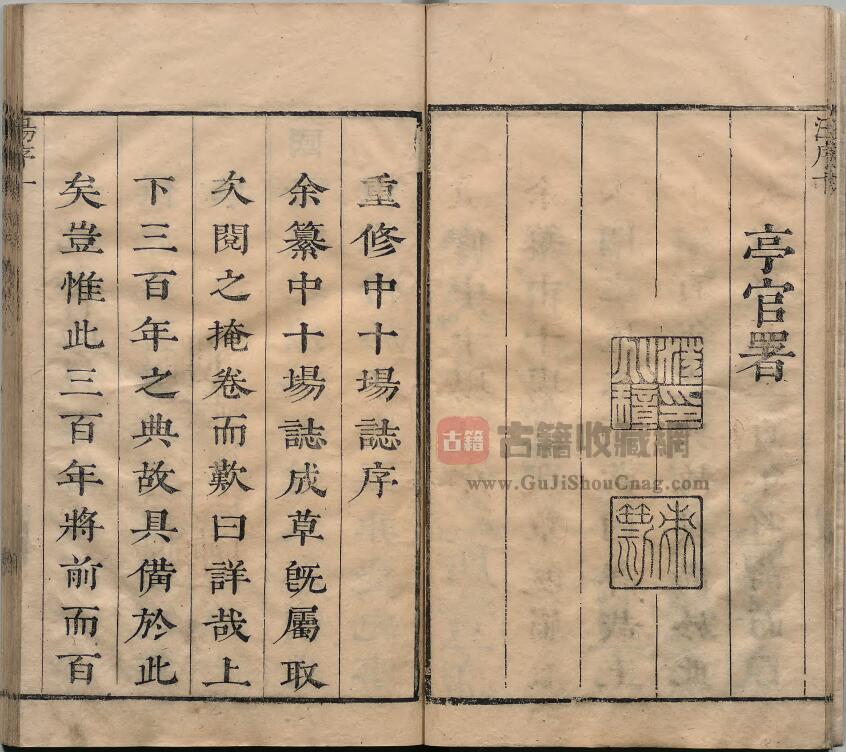 亭官署
重修中十場誌序
余纂中十場誌成草旣屬取
次閱之掩卷而歎曰詳哉上
下三百年之典故具備於此
矣豈惟此三百年將前而百
古籍
古籍收藏網
www.GuJiShouCnag.com